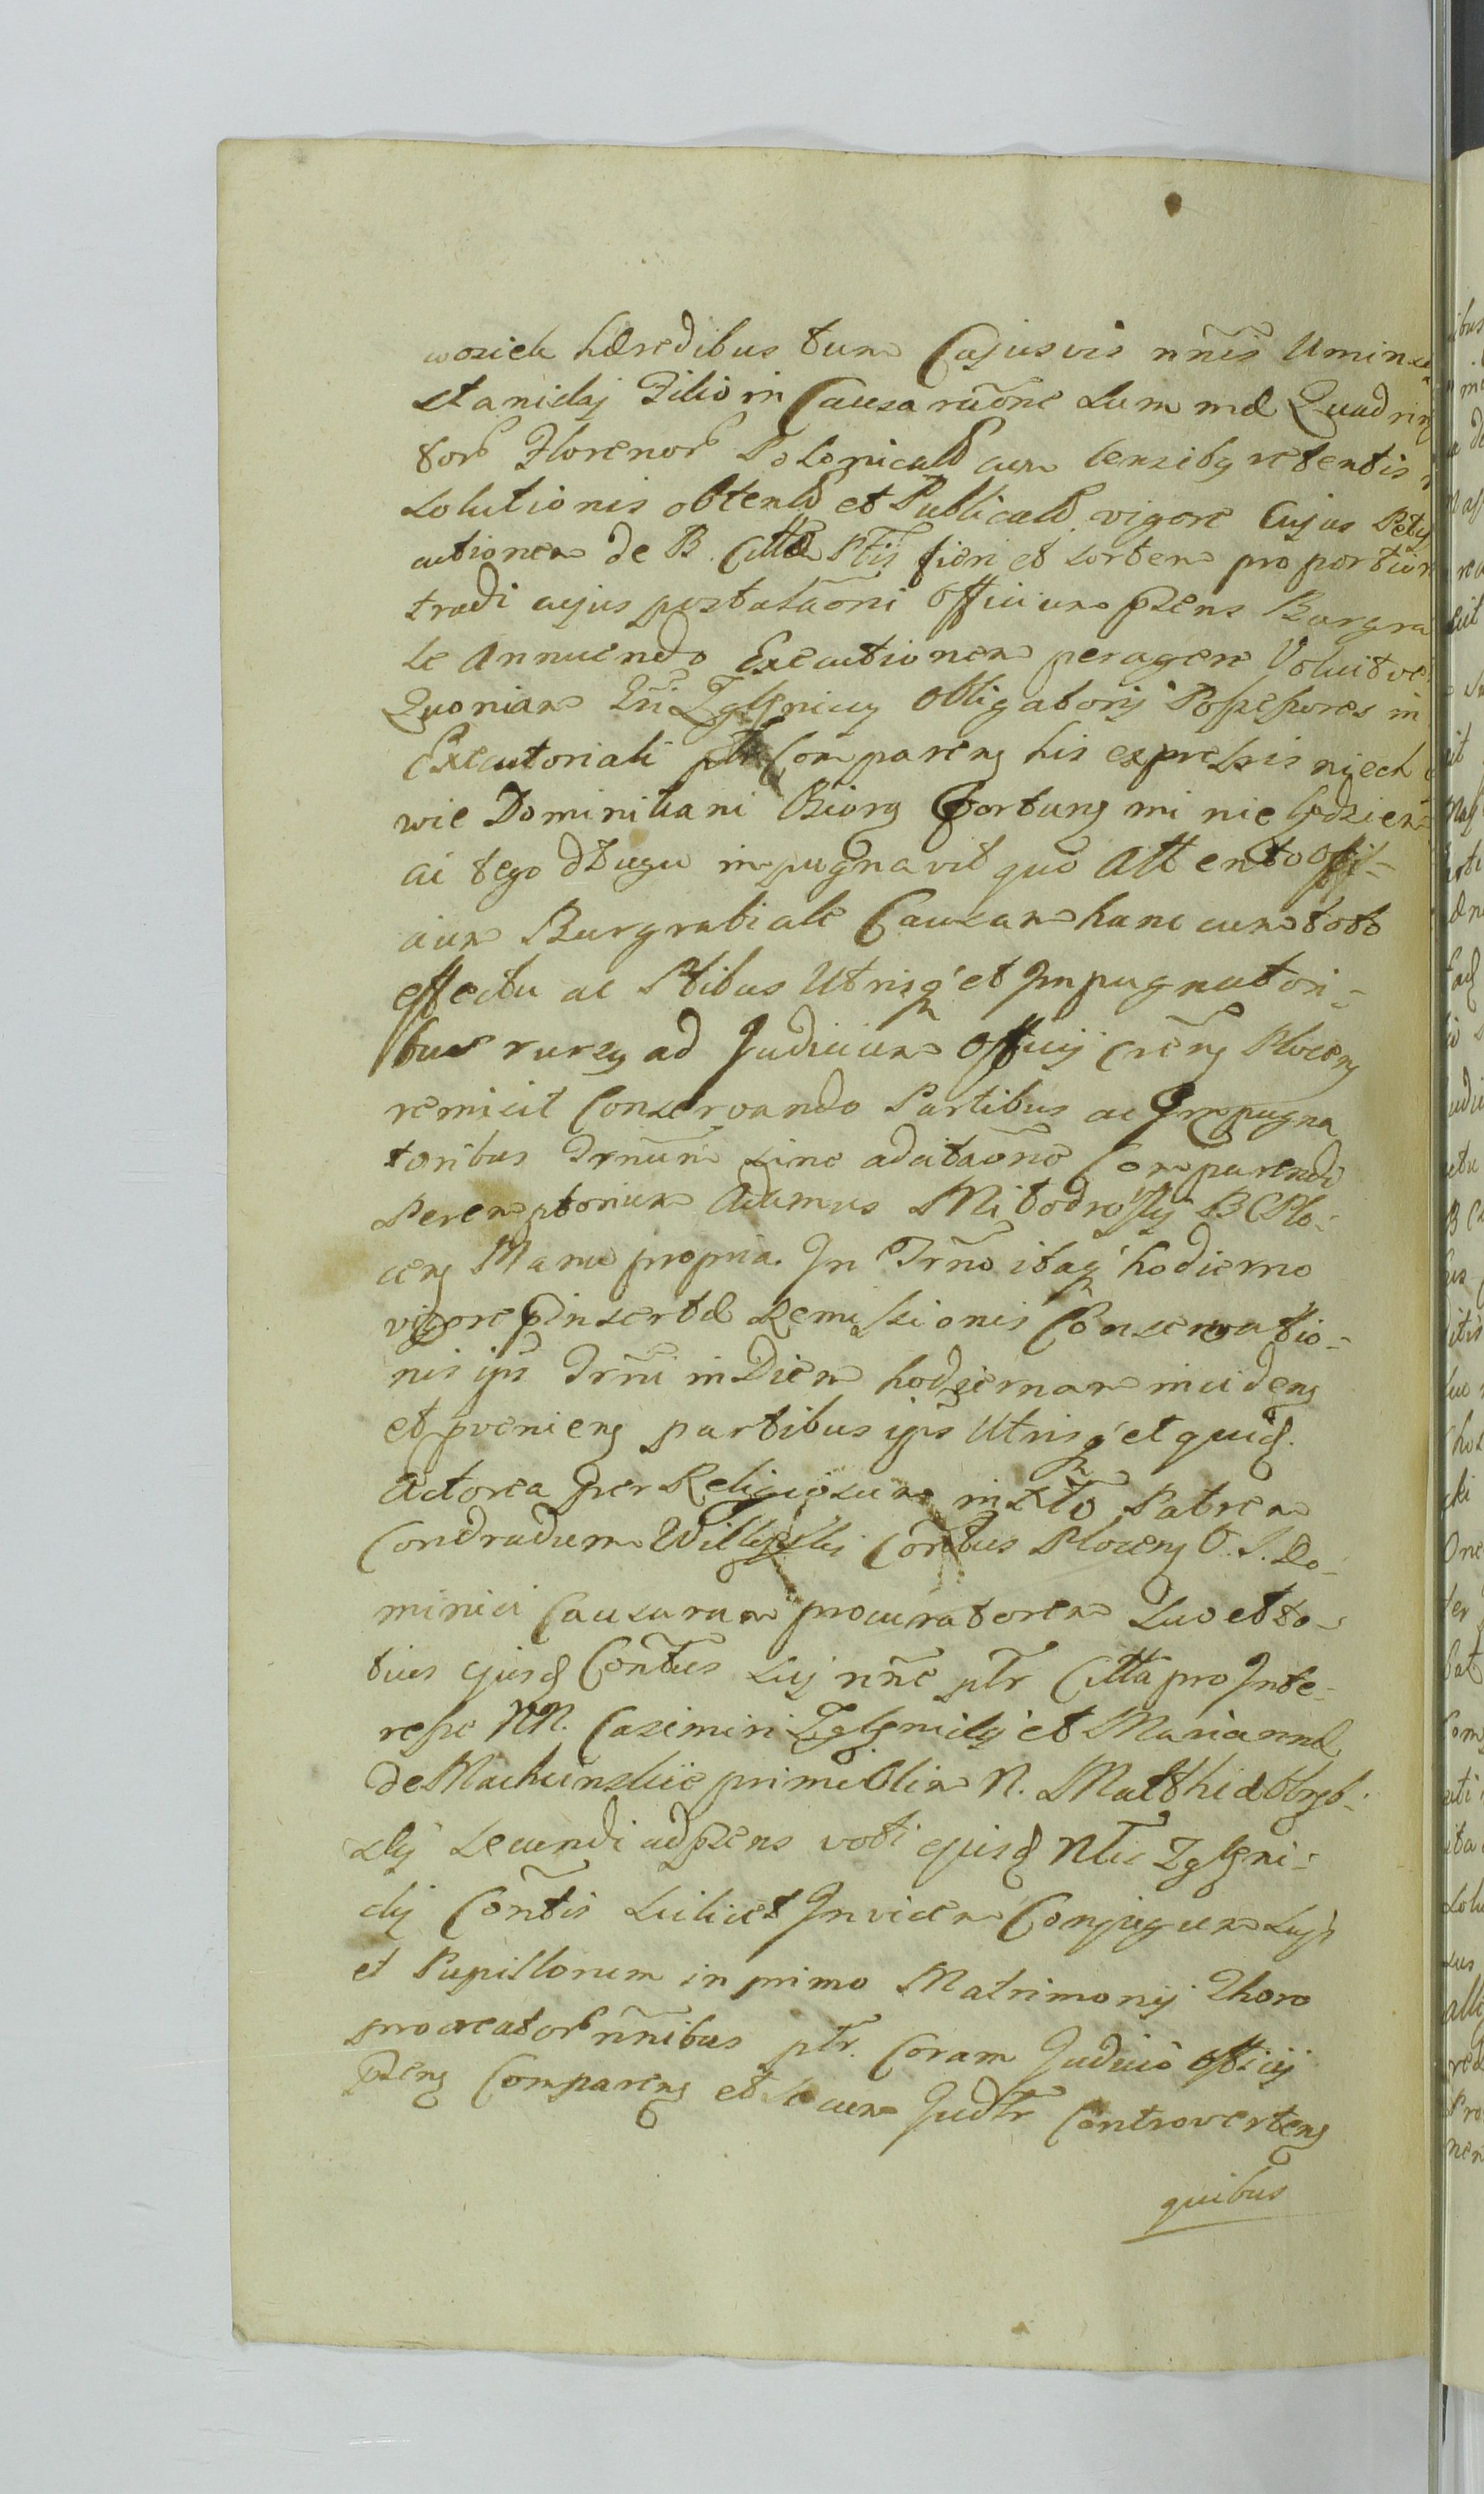 wosieck hæredibus tum Cujusvis nñis Umine
Stanislaj Filio in Causa raõne Summæ Quadrin
tor Florenor Polonicalr cum Censibq retentis
solutionis obtentr et Publicatr vigore Cujus Pety
cutionem de B. Cittæ Ptis fieri et sortem pro portion
tradi cujus postalaõni Officium pzens Burgra
le Annuendo Executionem peragere Voluit ve
Quoniam Zglenicq Obligatorij Possessores in
Executoriali ptr Comparens his expressis niech
wie Dominikani Biorą Fortunę mi nie będziem
ai tego długu impugnavit quo Attento Offi-
cium Burgrabiale Causam hanc cum toto
effectu ac Ptibus Utrisq et Impugnatori-
bus rursq ad Judicium Officij Crens Plocens
remisit Conservando Partibus ac Impugna
toribus Trnum sine aditaõne Comparendi
Peremptorium Adamus Mitodroski BCPlo-
cens Manu propria. In Trño itaq hodierno
vigore pinsertæ Remissionis Conservatio-
nis ips Trñi in Diem hodiernam incidens
et pveniens partibus ipis Utrisq et quid.
Actorea per Religiosum in Xto Patrem
Condradum Conbus Plocens O. S. Do-
minici Causarum procuratorem suo et to-
tius ejusd Contus sui nñe ptr Citta pro Inte-
resse NN. Casimiri Zglenicki et Mariannæ
de Machcinskie primi Olim N. Matthiæ
skij secundi ad pzens voti ejusd Nlis Zgleni-
ckij Contis scilicet Invicem Conjugum suis
et Pupillorum in primo Matrimonij Thoro
procreator nñibus ptr. Coram Judicio Officij
pzens Comparens et secum Judtr Controvertens
quibus